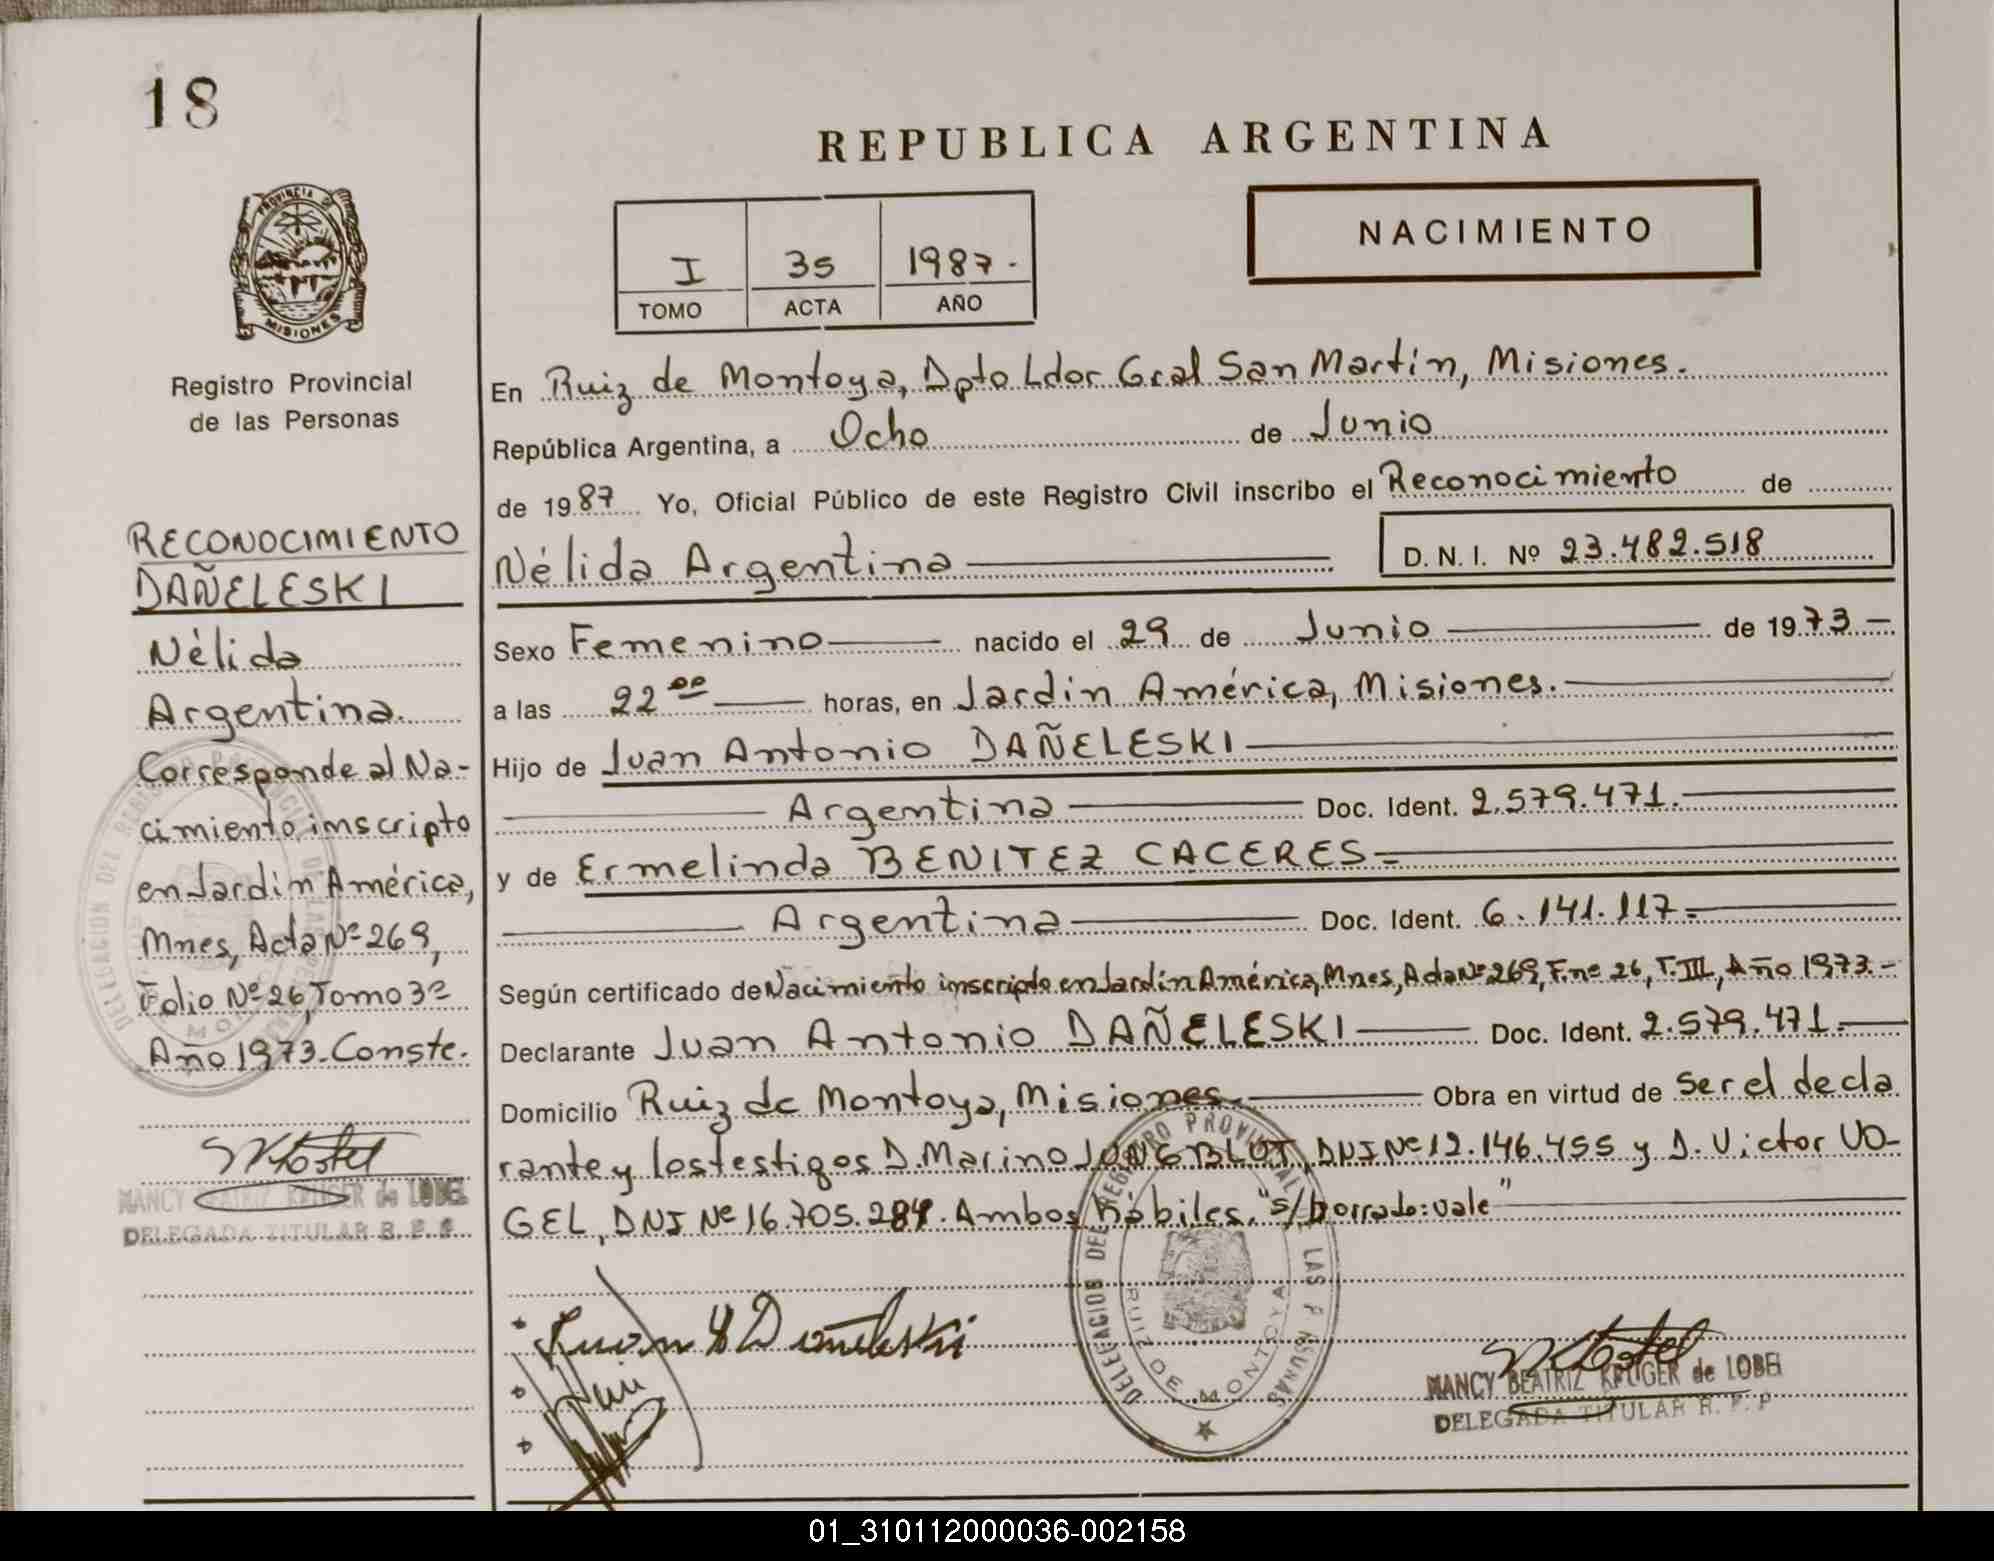 18
REPUBLICA ARGENTINA
PROVINCIA DE
MISIONES
Registro Provincial
de las Personas
I 35 1987.
TOMO ACTA AÑO
NACIMIENTO
RECONOCIMIENTO
DAÑELESKI
Nélida
Argentina.
Corresponde al Na-
cimiento inscripto
en Jardin América,
Mnes, Acta Nº 269,
Folio Nº 26, Tomo 3º
Año 1973. Conste.
NANCY BEATRIZ KRUGER de LOBEL
DELEGADA TITULAR R. P. P.
En Ruiz de Montoya, Dpto Ldor Gral San Martín, Misiones.
República Argentina, a Ocho de Junio
de 1987 Yo, Oficial Público de este Registro Civil inscribo el Reconocimiento de
Nélida Argentina D. N. I. Nº 23.482.518
Sexo Femenino nacido el 29 de Junio de 1973
a las 22 00 horas, en Jardin América, Misiones.
Hijo de Juan Antonio DAÑELESKI
Argentina Doc. Ident. 2.579.471.
y de Ermelinda BENITEZ CACERES
Argentina Doc. Ident. 6.141.117
Según certificado de Nacimiento inscripto en Jardín América, Mnes, Acta Nº 269, F. nº 26, T. III, Año 1973.-
Declarante Juan Antonio DAÑELESKI Doc. Ident. 2.579.471.
Domicilio Ruiz de Montoya, Misiones. Obra en virtud de ser el decla
rante y los testigos D. Marino JUNGBLUT, DNI Nº 12.146.455 y D. Victor VO-
GEL, DNI Nº 16.705.284. Ambos hábiles. "s/borrado: vale"
Juan A Dañeleski
DELEGACION DEL REGISTRO PROVINCIAL DE LAS PERSONAS
RUIZ DE MONTOYA
NANCY BEATRIZ KRUGER de LOBEL
DELEGADA TITULAR R. P. P
01_310112000036-002158